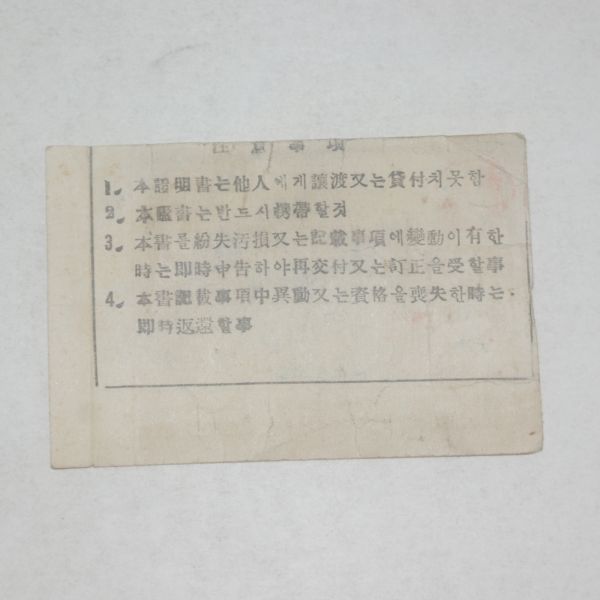 注意事項
1. 本證明書는他人에게讓渡又는貸付치못함
2. 本證書는반드시携帶할것
3. 本書를紛失汚損又는記載事項에變動이有한
時는即時申告하야再交付又는訂正을受할事
4. 本書記載事項中異動又는資格을喪失한時는
即時返還할事